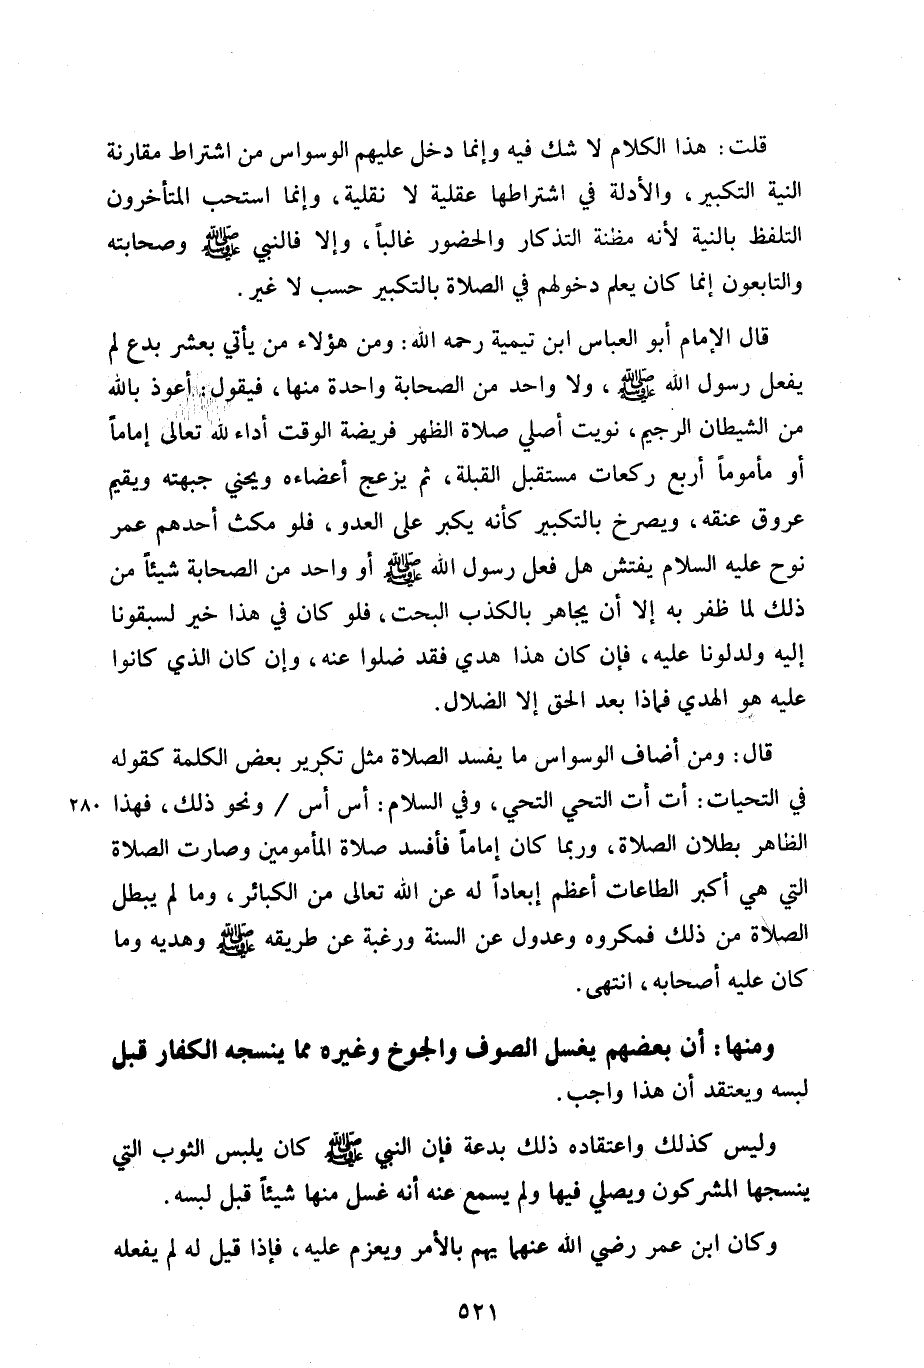 قلت: هذا الكلام لا شك فيه وإنما دخل عليهم الوسواس من اشتراط مقارنة
النية التكبير، والأدلة في اشتراطها عقلية لا نقلية، وإنما استحب المتأخرون
التلفظ بالنية لأنه مظنة التذكار والحضور غالباً، وإلا فالنبي ﷺ وصحابته
والتابعون إنما كان يعلم دخولهم في الصلاة بالتكبير حسب لا غير.
قال الإمام أبو العباس ابن تيمية رحمه الله: ومن هؤلاء من يأتي بعشر بدع لم
يفعل رسول الله ﷺ، ولا واحد من الصحابة واحدة منها، فيقول: أعوذ بالله
من الشيطان الرجيم، نويت أصلي صلاة الظهر فريضة الوقت أداء لله تعالى إماماً
أو مأموماً أربع ركعات مستقبل القبلة، ثم يزعج أعضاءه ويحني جبهته ويقيم
عروق عنقه، ويصرخ بالتكبير كأنه يكبر على العدو، فلو مكث أحدهم عمر
نوح عليه السلام يفتش هل فعل رسول الله ﷺ أو واحد من الصحابة شيئاً من
ذلك لما ظفر به إلا أن يجاهر بالكذب البحت، فلو كان في هذا خير لسبقونا
إليه ولدلونا عليه، فإن كان هذا هدي فقد ضلوا عنه، وإن كان الذي كانوا
عليه هو الهدي فماذا بعد الحق إلا الضلال.
قال: ومن أضاف الوسواس ما يفسد الصلاة مثل تكرير بعض الكلمة كقوله
في التحيات: أت أت التحي التحي، وفي السلام: أس أس / ونحو ذلك، فهذا ٢٨٠
الظاهر بطلان الصلاة، وربما كان إماماً فأفسد صلاة المأمومين وصارت الصلاة
التي هي أكبر الطاعات أعظم إبعاداً له عن الله تعالى من الكبائر، وما لم يبطل
الصلاة من ذلك فمكروه وعدول عن السنة ورغبة عن طريقه ﷺ وهديه وما
كان عليه أصحابه، انتهى.
ومنها: أن بعضهم يغسل الصوف والجوخ وغيره مما ينسجه الكفار قبل
لبسه ويعتقد أن هذا واجب.
وليس كذلك واعتقاده ذلك بدعة فإن النبي ﷺ كان يلبس الثوب التي
ينسجها المشركون ويصلي فيها ولم يسمع عنه أنه غسل منها شيئاً قبل لبسه.
وكان ابن عمر رضي الله عنهما يهم بالأمر ويعزم عليه، فإذا قيل له لم يفعله
٥٢١